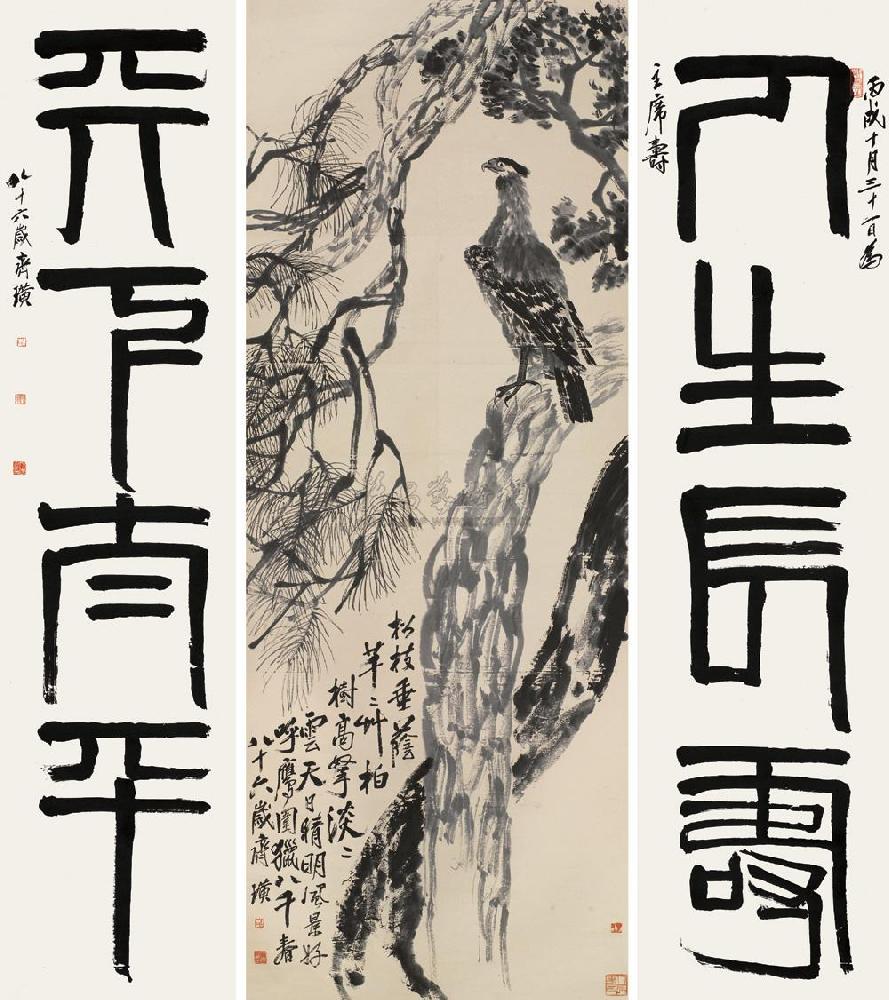 丙戌十月三十一日為
人生長壽
主席壽
松枝垂蔭
芊二艸柏
樹高擎淡二
雲天日晴明風景好
呼鷹圍獵八千春
八十六歲齊璜
天下太平
八十六歲齊璜